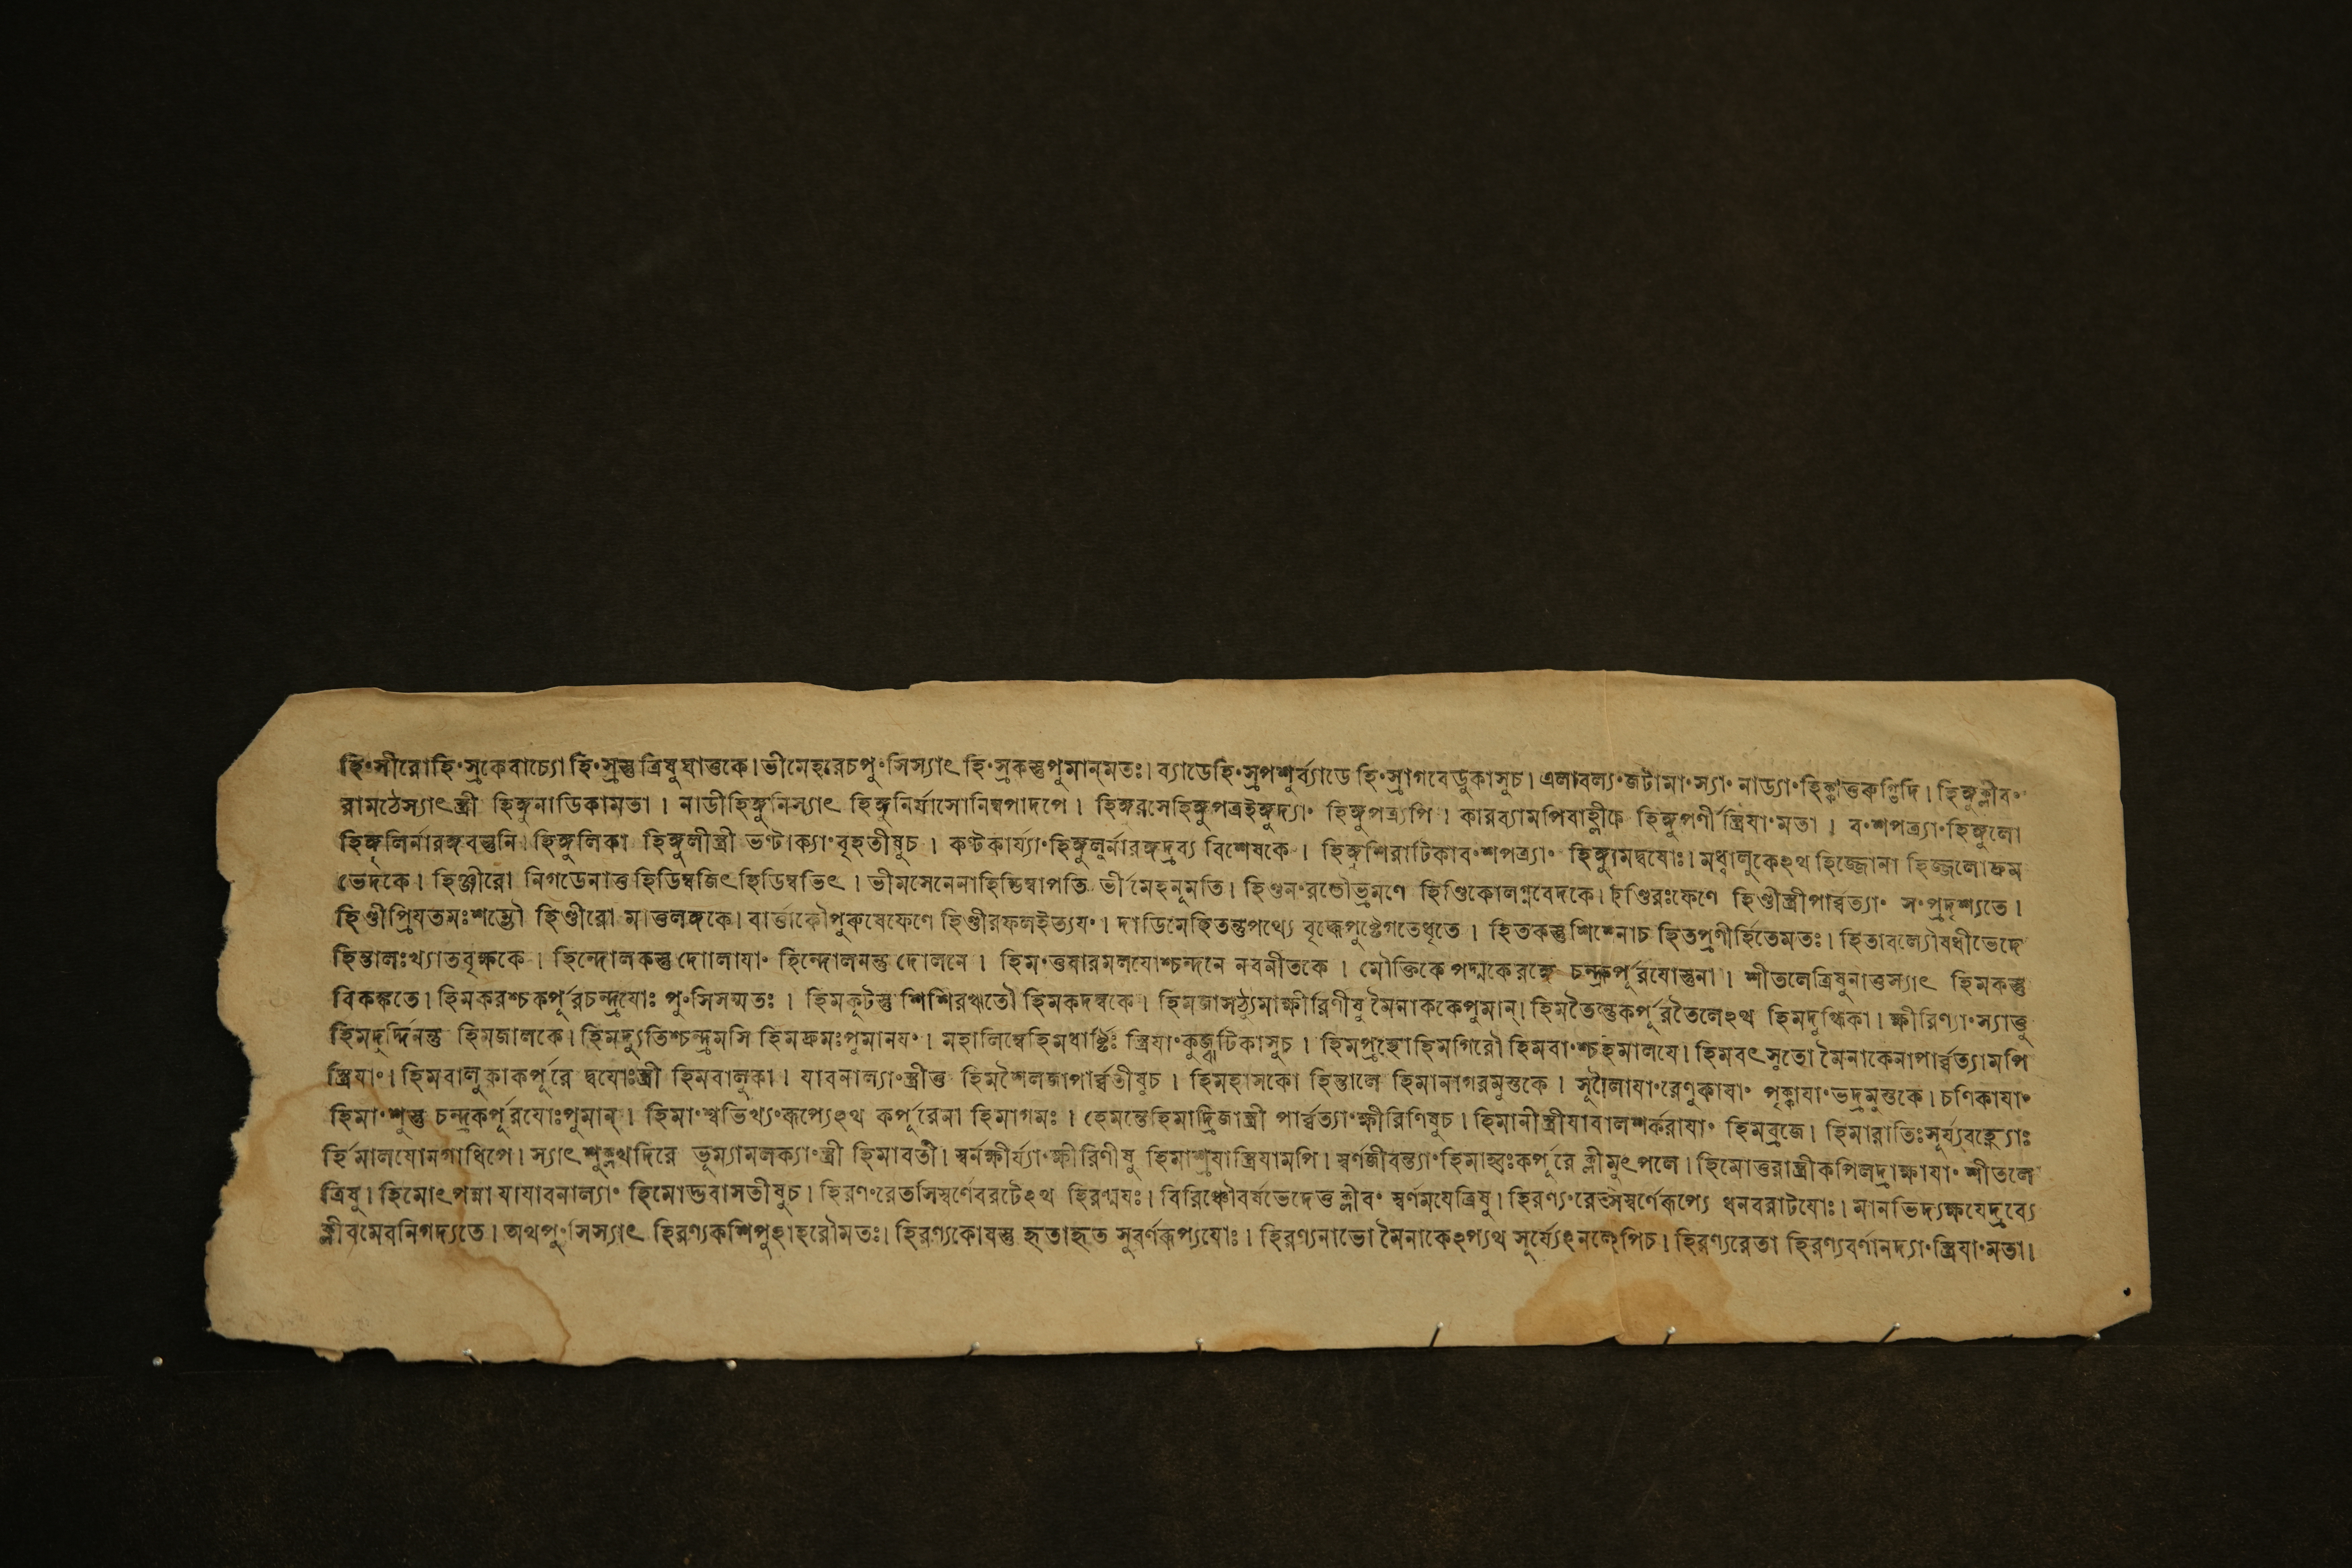 হিংসীরোহিংস্রকেবাচ্যো হিংস্রস্তুত্রিষুঘাত্তকে। ভীমেহরেচপুংসিস্যাৎ হিংস্রকস্তুপুমান্মতঃ। ব্যাডেহিংস্রপশুর্ব্যাডে হিংস্রাগবেডুকাসুচ। এলাবল্যংজটামাংস্যাং নাড্যাংহিক্কাত্ত হিঙ্গুক্লীবং
রামঠেস্যাৎস্ত্রী হিঙ্গুনাডিকামতা। নাডীহিঙ্গুনিস্যাৎ হিঙ্গুনির্যাসোনিম্বপাদপে। হিঙ্গরসেহিঙ্গুপত্রইঙ্গুদ্যাং হিঙ্গুপত্র্যপি। কারব্যামপিবাহ্লীকে হিঙ্গুপর্ণী স্ত্রিযাংমতা। বংশপত্র্যাংহিঙ্গুলো
হিঙ্গুলির্নারঙ্গবস্তুনি। হিঙ্গুলিকা হিঙ্গুলীস্ত্রী ভণ্টাক্যাংবৃহতীষুচ। কণ্টকার্য্যাংহিঙ্গুলুর্নারঙ্গদ্রব্য বিশেষকে। হিঙ্গুশিরাটিকাবংশপত্র্যাং হিঙ্গুামদ্বযোঃ। মধ্বালুকেঽথ হিজ্জোনা হিজ্জলোদ্রুম
ভেদকে। হিঞ্জীরো নিগডেনাত্ত হিডিম্বজিৎহিডিম্বভিৎ। ভীমসেনেনাহিডিম্বাপত্তি র্ভীমেহনূমতি। হিণ্ডনংরতৌভ্রমণে হিণ্ডিকোলগ্নবেদকে। হিণ্ডিরঃফেণে হিণ্ডীস্ত্রীপার্ব্বত্যাং সংপ্রদৃশ্যতে।
হিণ্ডীপ্রিযতমঃশম্ভৌ হিণ্ডীরো মাত্তলঙ্গকে। বার্ত্তাকৌপুরুষেফেণে হিণ্ডীরফলইত্যযং। দাডিমেহিতস্তুপথ্যে বৃদ্ধেপুষ্টেগতেধৃতে। হিতকস্তুশিশ্নোচ হিতপ্রণীর্হিতেমতঃ। হিতাবল্যৌষধীভেদে
হিন্তালঃখ্যাতবৃক্ষকে। হিন্দোলকস্তু দোলাযাং হিন্দোলনন্তু দোলনে। হিমংত্তষারমলযোশ্চন্দনে নবনীতকে। মৌক্তিকে পদ্মকেরঙ্গে চন্দ্রকপূরযোস্তুনা। শীতলেত্রিষুনাত্তস্যাৎ হিমকস্তু
বিকঙ্কতে। হিমকরশ্চকর্পূরচন্দ্রযোঃ পুংসিসম্মতঃ। হিমকূটস্তু শিশিরঋতৌ হিমকদম্বকে। হিমজাসঠ্যুমাক্ষীরিণীষু মৈনাককেপুমান্। হিমতৈলন্তুকর্পূরতৈলেঽথ হিমদুগ্ধিকা। ক্ষীরিণ্যাংস্যাত্তু
হিমদুর্দ্দিনন্তু হিমজালকে। হিমদ্যুতিশ্চন্দ্রমসি হিমদ্রুমঃপুমানযং। মহালিম্বেহিমধার্ষ্টিঃ স্ত্রিযাংকুজ্ঝটিকাসুচ। হিমপ্রস্থোহিমগিরৌ হিমবাংশ্চহিমালযে। হিমবৎসুতো মৈনাকেনাপার্ব্বত্যামপি
স্ত্রিযাং। হিমবালুকাকর্পূরে দ্বযোঃস্ত্রী হিমবালুকা। যাবনাল্যাংস্ত্রীত্ত হিমশৈলজাপার্ব্বতীষুচ। হিমহাসকো হিন্তালে হিমানাগরমুস্তকে। সূক্ষ্মৈলাযাংরেণুকাযাং পৃক্কাযাংভদ্রমুস্তকে। চণিকাযাং
হিমাংশুস্তু চন্দ্রকর্পূরযোঃপুমান্। হিমাংশ্বভিখ্যংরূপ্যেঽথ কর্পূরেনা হিমাগমঃ। হেমন্তেহিমাদ্রিজাস্ত্রী পার্ব্বত্যাংক্ষীরিণিষুচ। হিমানীস্ত্রীযাবালশর্করাযাং হিমব্রজে। হিমারাতিঃসূর্য্যবহ্ন্যোঃ
র্হিমালযোনগাধিপে। স্যাৎশুক্লখদিরে ভূম্যামলক্যাংস্ত্রী হিমাবতী। স্বর্নক্ষীর্য্যাংক্ষীরিণীষু হিমাশ্রযাস্ত্রিযামপি। স্বর্ণজীবন্ত্যাংহিমাহ্বঃকর্পূরে ক্লীমুৎপলে। হিমোত্তরাস্ত্রীকপিলদ্রাক্ষাযাং শীতলে
ত্রিষু। হিমোৎপন্না যাযাবনাল্যাং হিমোদ্ভবাসতীষুচ। হিরণংরেতসিস্বর্ণেবরটেঽথ হিরণ্মযঃ। বিরিঞ্চৌবর্ষভেদেত্ত ক্লীবং স্বর্ণমযেত্রিষু। হিরণ্যংরেতসস্বর্ণেরূপ্যে ধনবরাটযোঃ। মানভিদ্যক্ষযেদ্রব্যে
ক্লীবমেবনিগদ্যতে। অথপুংসিস্যাৎ হিরণ্যকশিপুহাহরৌমতঃ। হিরণ্যকোষস্তু হৃতাহৃত সুবর্ণরূপ্যযোঃ। হিরণ্যনাভো মৈনাকেঽপ্যথ সূর্য্যেঽনলেপিচ। হিরণ্যরেতা হিরণ্যবর্ণানদ্যাংস্ত্রিযাংমতা।